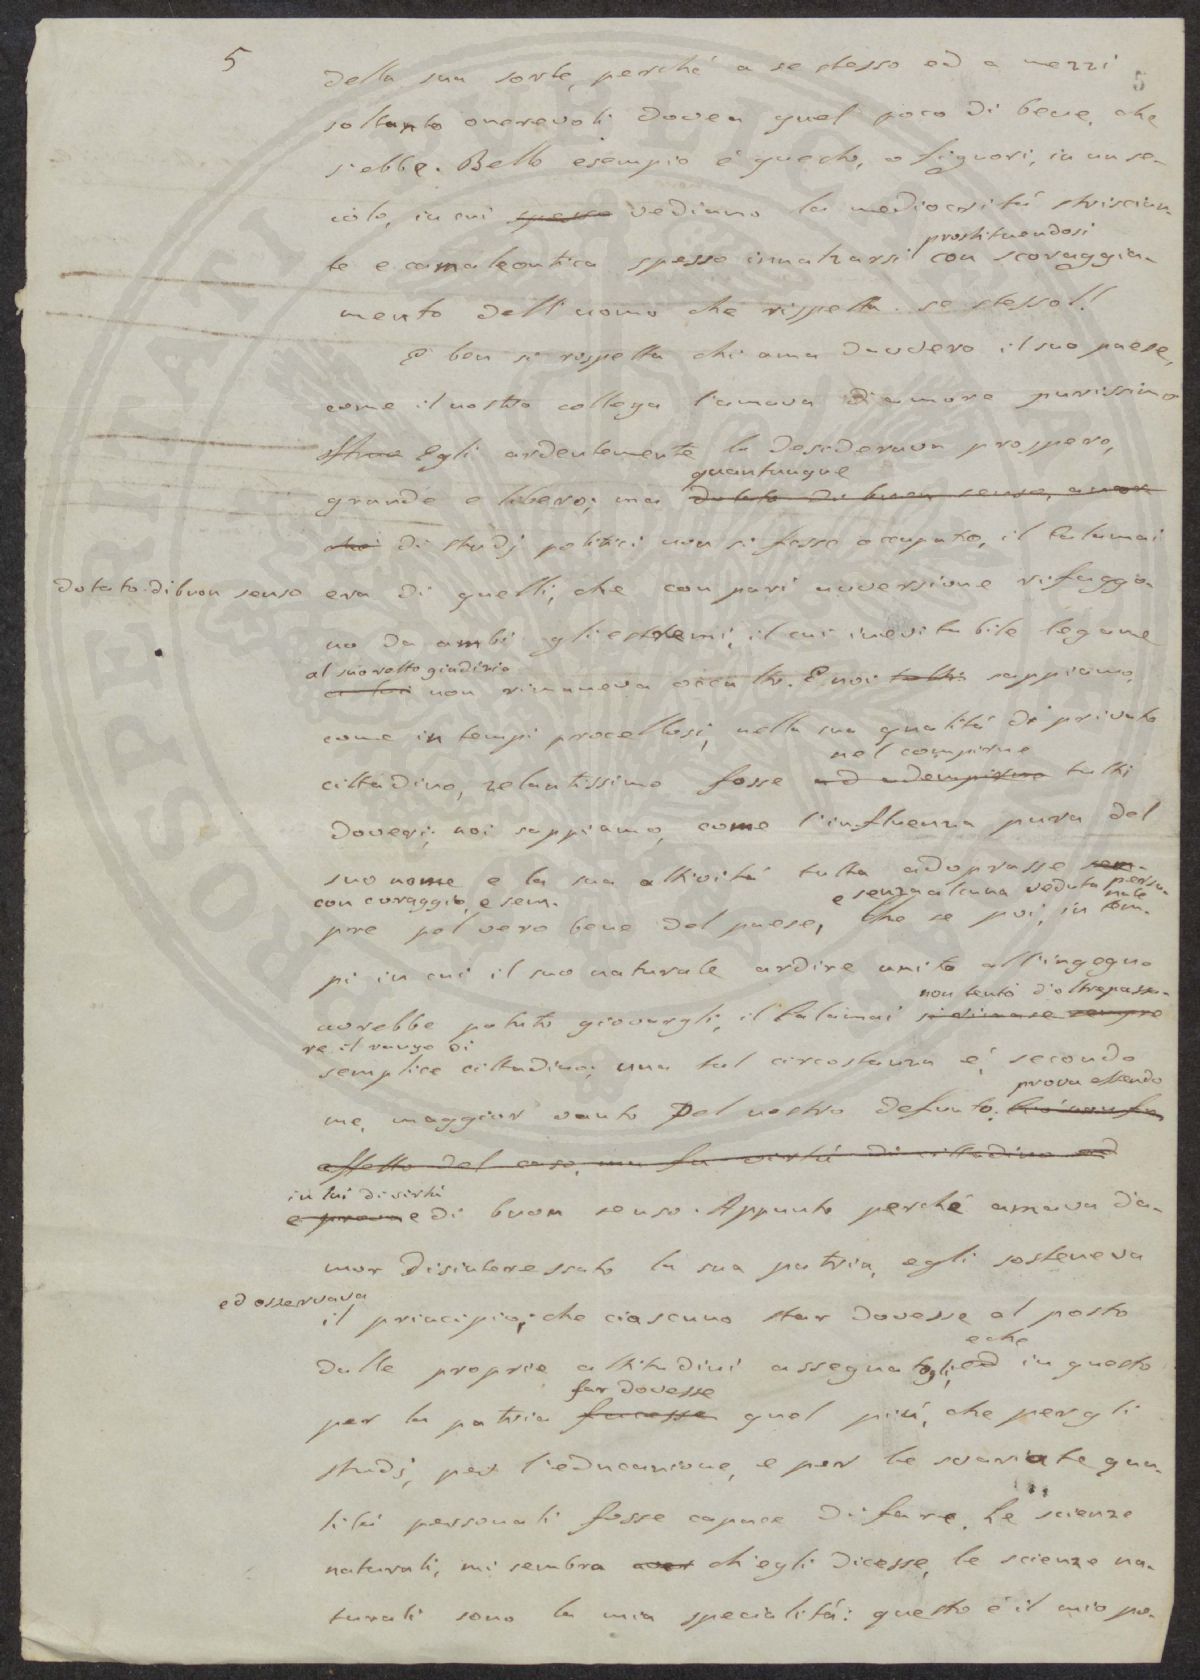 5
5
della sua sorte, perché a se stesso ed a mezzi
soltanto onorevoli doveu quel poco di bene, che
s'ebbe. Bello esempio é questo, o Signori, in un se-
colo, in cui spesso vediamo la mediocrità striscian-
prostituendosi
te e camaleontica spesso innalzarsi con scoraggia-
mento dell'uomo che rispetta se stesso!!
E ben si rispetta chi ama davvero il suo paese,
come il nostro collega l'amava d'amore purissimo
Egli ardentemente lo desiderava prospero,
quantunque
grande e libero; ma dotato di buon senso, ancor
ché di studj politici non si fosse occupato, il Calamai
dotato di buon senso era di quelli, che con pari avversione rifuggo-
no da ambi gli estremi, il cui inevitabile legame
al suo retto giudizio
a lui non rimaneva occulto. E noi tutti sappiamo,
come in tempi procellosi, nella sua qualità di privato
nel compierne
cittadino, zelantissimo fosse ad adempirne tutti
doveri; noi sappiamo, come l'influenza pura del
suo nome e la sua attività tutta adoprasse sem-
con coraggio, e sem- e senza alcuna veduta perso-
nale
pre pel vero bene del paese, Che se poi, in tem-
pi in cui il suo naturale ardire unito all'ingegno
non tentò d'oltrepassa-
avrebbe potuto giovargli, il Calamai si rimase sempre
re il rango di
semplice cittadino; una tal circostanza é, secondo
prova essendo
me, maggior vanto del nostro defunto. Ció non fu
effetto del caso, ma fu virtú di cittadino ed
in lui di virtú
e prova e di buon senso. Appunto perché amava d'a-
mor disinteressato la sua patria, egli sosteneva
ed osservava
il principio, che ciascuno star dovesse al posto
e che
dalle proprie attitudini assegnatogli, ed in questo
far dovesse
per la patria facesse quel piú, che per gli
studj, per l'educazione, e per le svariate qua-
lità personali fosse capace di fare. Le scienze
naturali, mi sembra aver ch'egli dicesse, le scienze na-
turali sono la mia specialità: questo é il mio po-